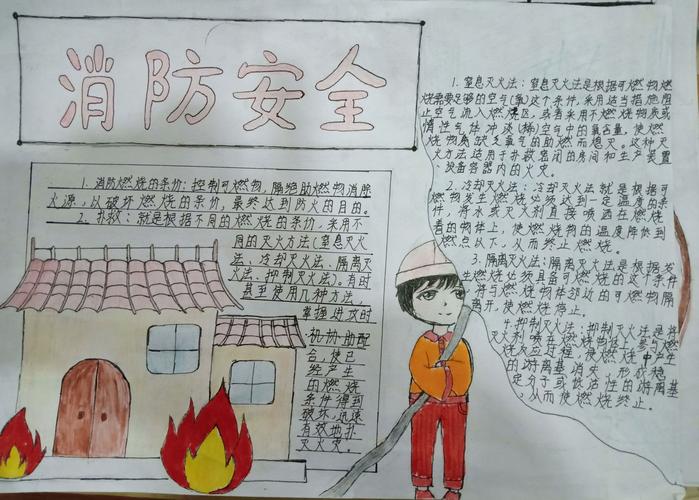 消防安全
1. 消防燃烧的条件: 控制可燃物, 隔绝助燃物消除
火源, 以破坏燃烧的条件, 最终达到防火的目的。
2. 扑救: 就是根据不同的燃烧的条件, 采用不
同的灭火方法(窒息灭火
法、冷却灭火法、隔离灭
火法、抑制灭火法)。有时
甚至使用几种方法,
掌握进攻时
机协助配
合, 使已
经产生
的燃烧
条件得到
破坏, 迅速
有效地扑
灭火灾。
1. 窒息灭火法: 窒息灭火法是根据可燃物燃
烧需要足够的空气(氧)这个条件, 采用适当措施阻
止空气流入燃烧区, 或者采用不燃烧物质或
惰性气体冲淡(稀)空气中的氧含量, 使燃
烧物离缺乏氧气的助燃而熄灭。这种灭
火方法适用于扑救密闭的房间和生产装置
设备容器内的火灾。
2. 冷却灭火法: 冷却灭火法就是根据可
燃物发生燃烧必须达到一定温度的条
件, 将水或灭火剂直接喷洒在燃烧
着的物体上, 使燃烧物的温度降低到
燃点以下, 从而终止燃烧。
3. 隔离灭火法: 隔离灭火法是根据发
生燃烧必须具备可燃烧的这个条件
将与燃烧物体邻近的可燃物隔
离开, 使燃烧停止。
4. 抑制灭火法: 抑制灭火法是将
灭火剂喷在燃烧物体上, 参与燃
烧反应过程, 使燃烧中产生
的游离基消失, 形成稳
定分子或低活性的游离基
, 从而使燃烧终止。